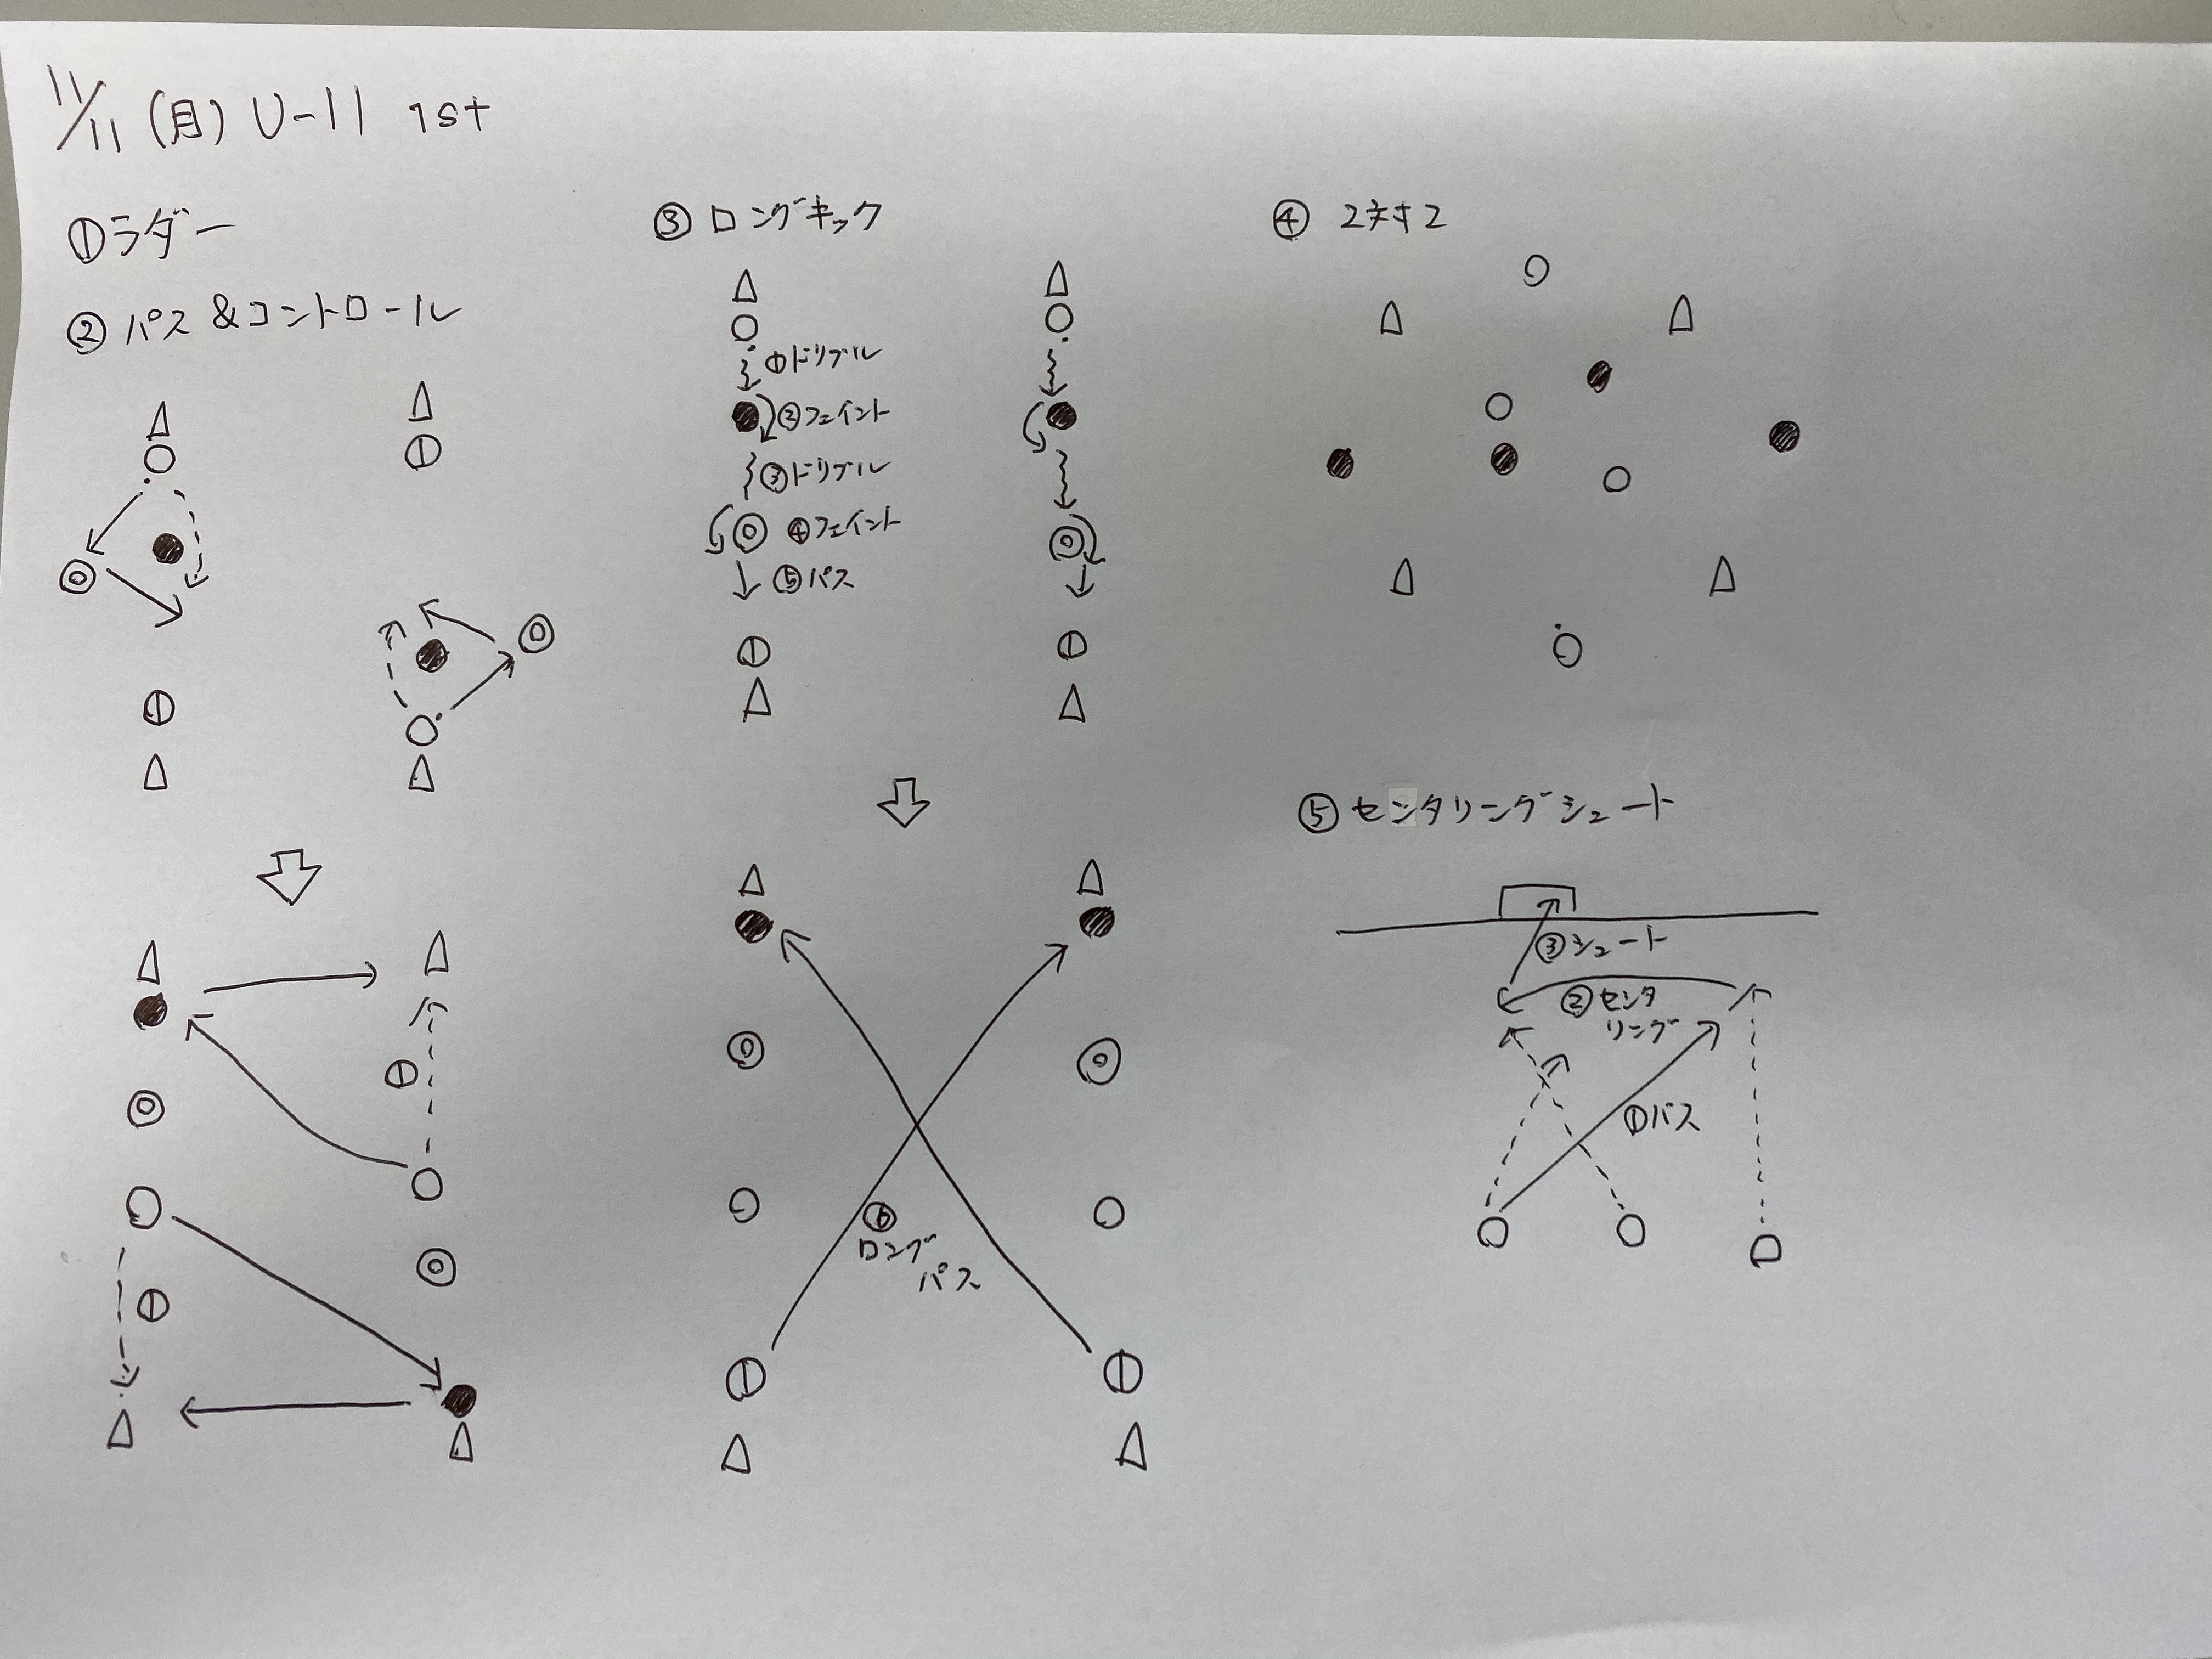 11/11 (月) U-11 1st
①ラダー
②パス&コントロール
③ロングキック
①ドリブル
②フェイント
③ドリブル
④フェイント
⑤パス
⑥
ロング
パス
④ 2対2
⑤センタリングシュート
③シュート
②センタ
リング
①パス